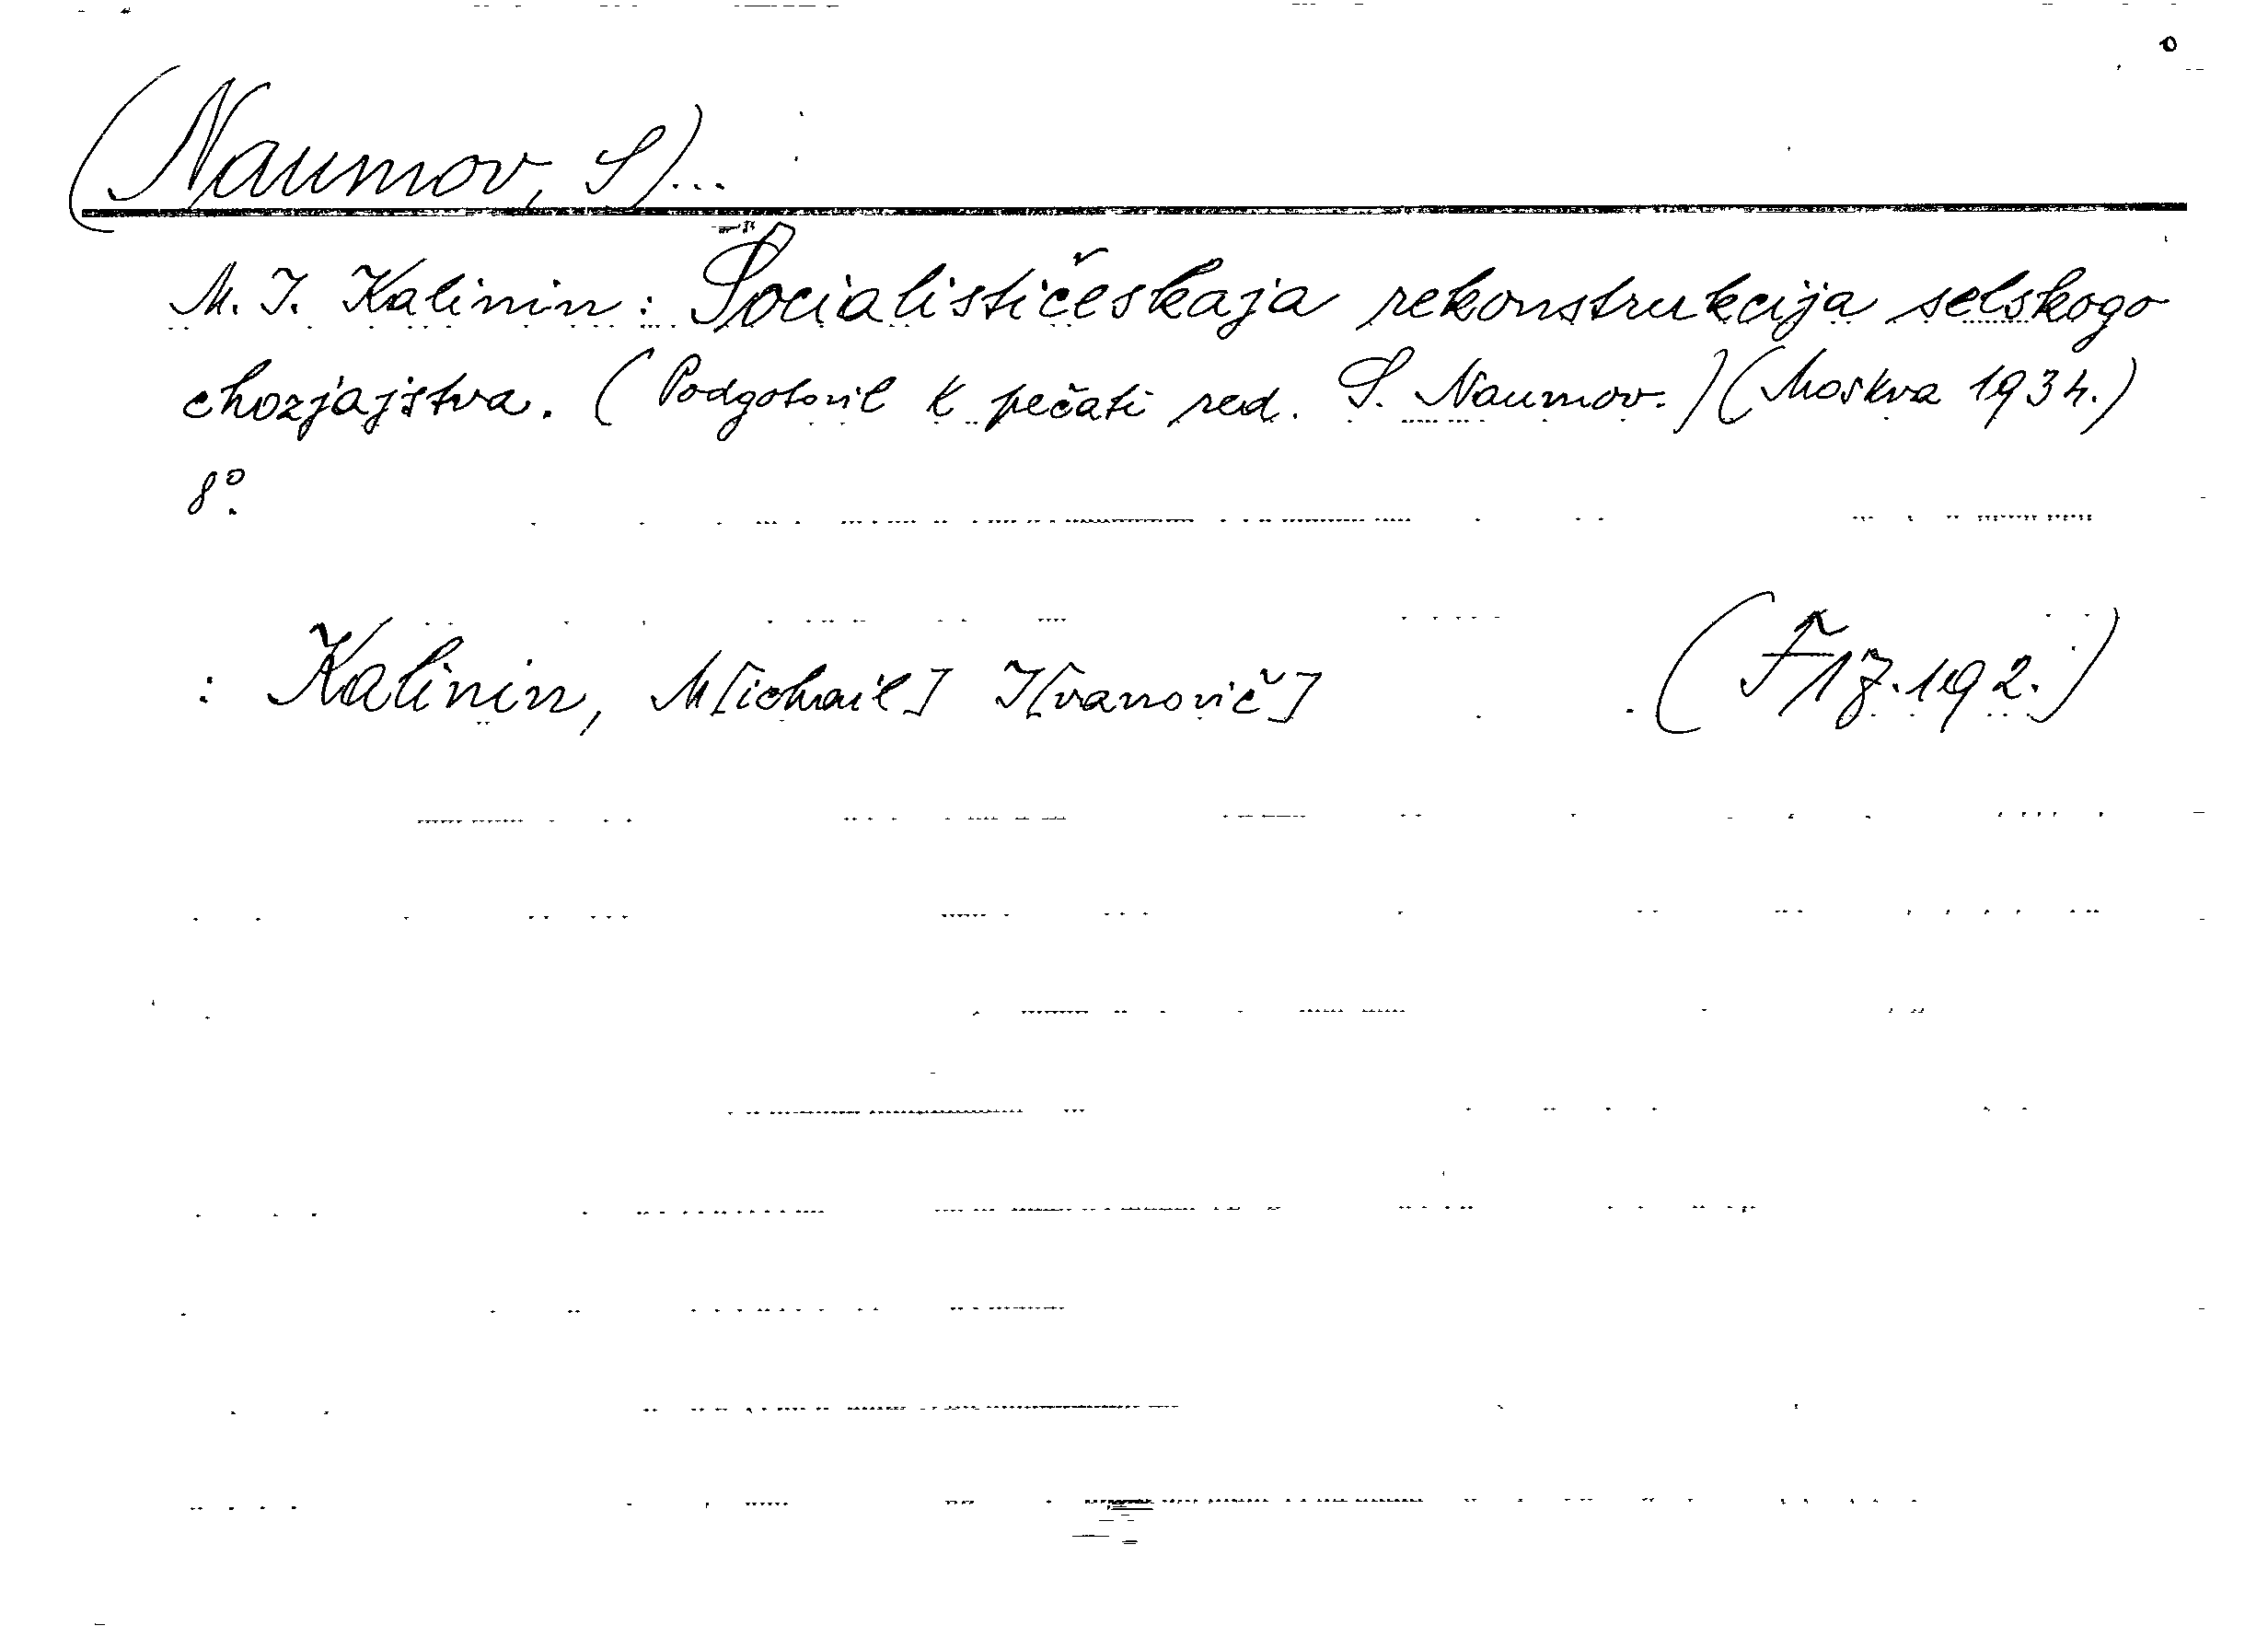 (Naumov, S)...
M. I. Kalinin: Socialističeskaja rekonstrukcija selskogo
chozjajstva. (Podgotovil k pečati red. S. Naumov.) (Moskva 1934.)
8°.
: Kalinin, M[ichail] I[vanovič] (F17.192.)